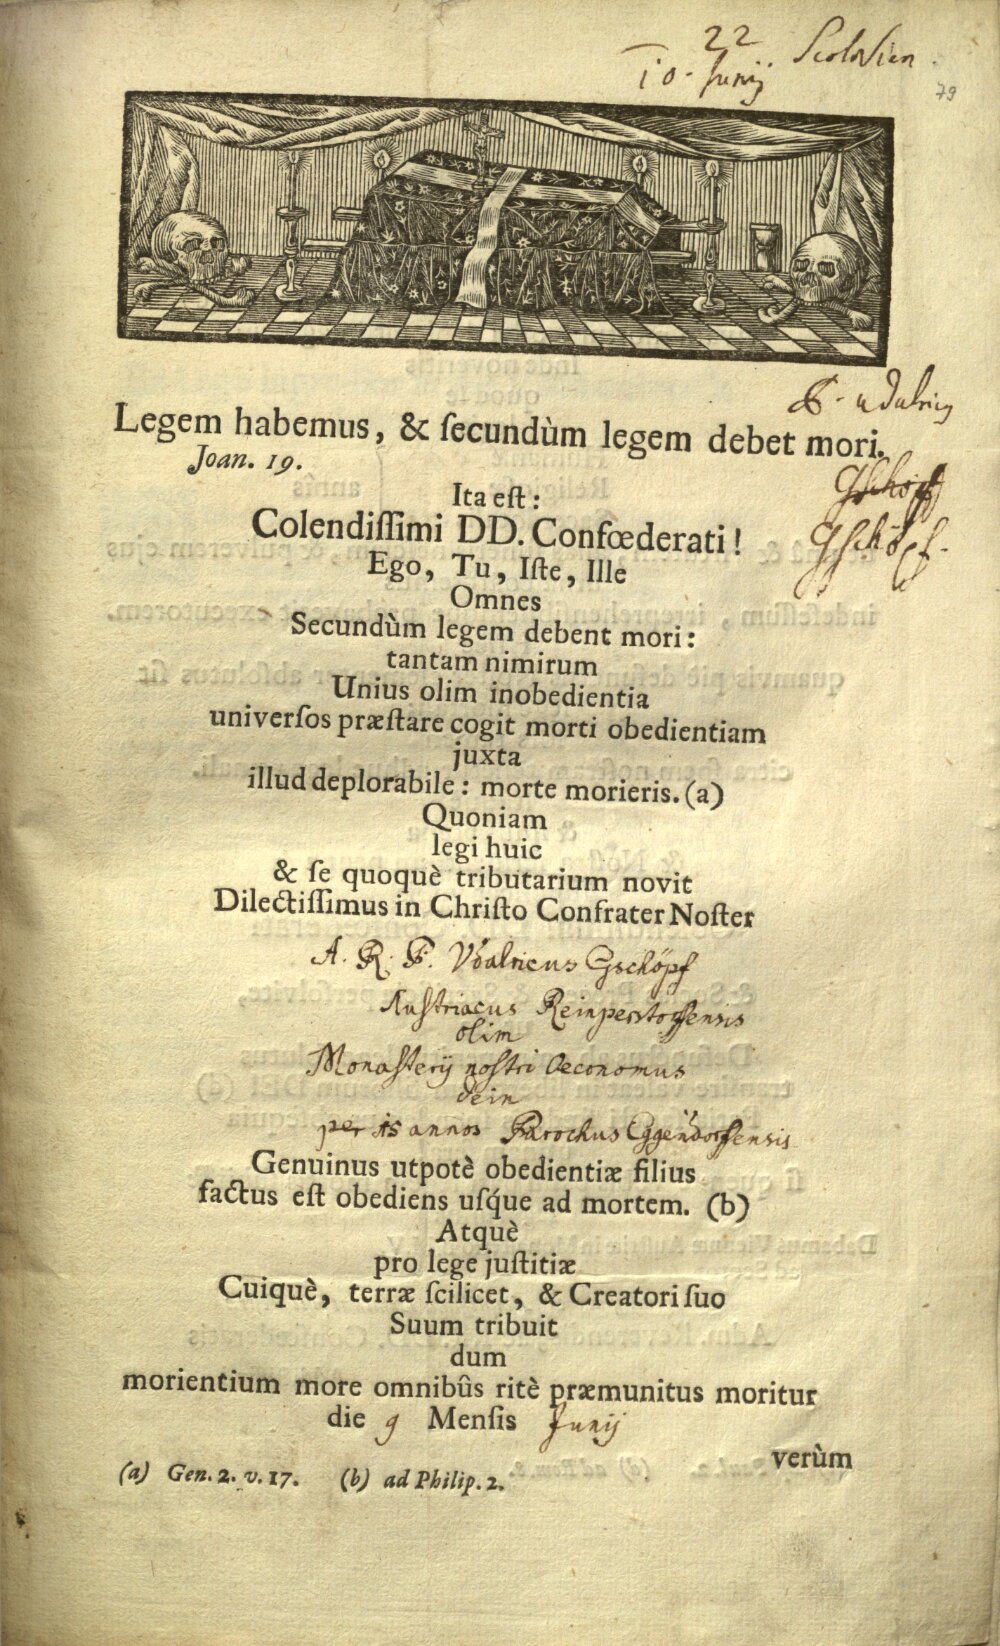 22 Scotorien
10. Junij
79
P. udalricus
Legem habemus, & ſecundùm legem debet mori.
Joan. 19.
Gschöpf
Gschöpf.
Ita eſt:
Colendiſſimi DD. Confœderati!
Ego, Tu, Iſte, Ille
Omnes
Secundùm legem debent mori:
tantam nimirum
Unius olim inobedientia
univerſos præſtare cogit morti obedientiam
juxta
illud deplorabile: morte morieris. (a)
Quoniam
legi huic
& ſe quoquè tributarium novit
Dilectiſſimus in Chriſto Confrater Noſter
A. R. P. Udalricus Gschöpf
Austriacus Reinperstorffensis
olim
Monasterij nostri Oeconomus
dein
per is annos Parochus Eggendorffensis
Genuinus utpotè obedientiæ filius
factus eſt obediens uſq́ue ad mortem. (b)
Atquè
pro lege juſtitiæ
Cuiquè, terræ ſcilicet, & Creatori ſuo
Suum tribuit
dum
morientium more omnibûs ritè præmunitus moritur
die 9 Menſis Junij
verùm
(a) Gen. 2. v. 17. (b) ad Philip. 2.